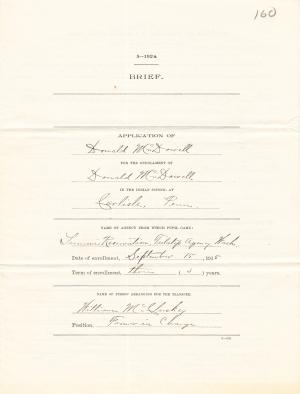 160
5—192 a
BRIEF.
APPLICATION OF
Donald McDowell
FOR THE ENROLLMENT OF
Donald McDowell
IN THE INDIAN SCHOOL AT
Carlisle, Penn.
NAME OF AGENCY FROM WHICH PUPIL CAME:
Reservation, Tulalip Agency Wash.
Date of enrollment, September 15, 1915
Term of enrollment, three (3) years.
NAME OF PERSON ARRANGING FOR THE TRANSFER:
William McCluskey
Position, Farmer in Charge